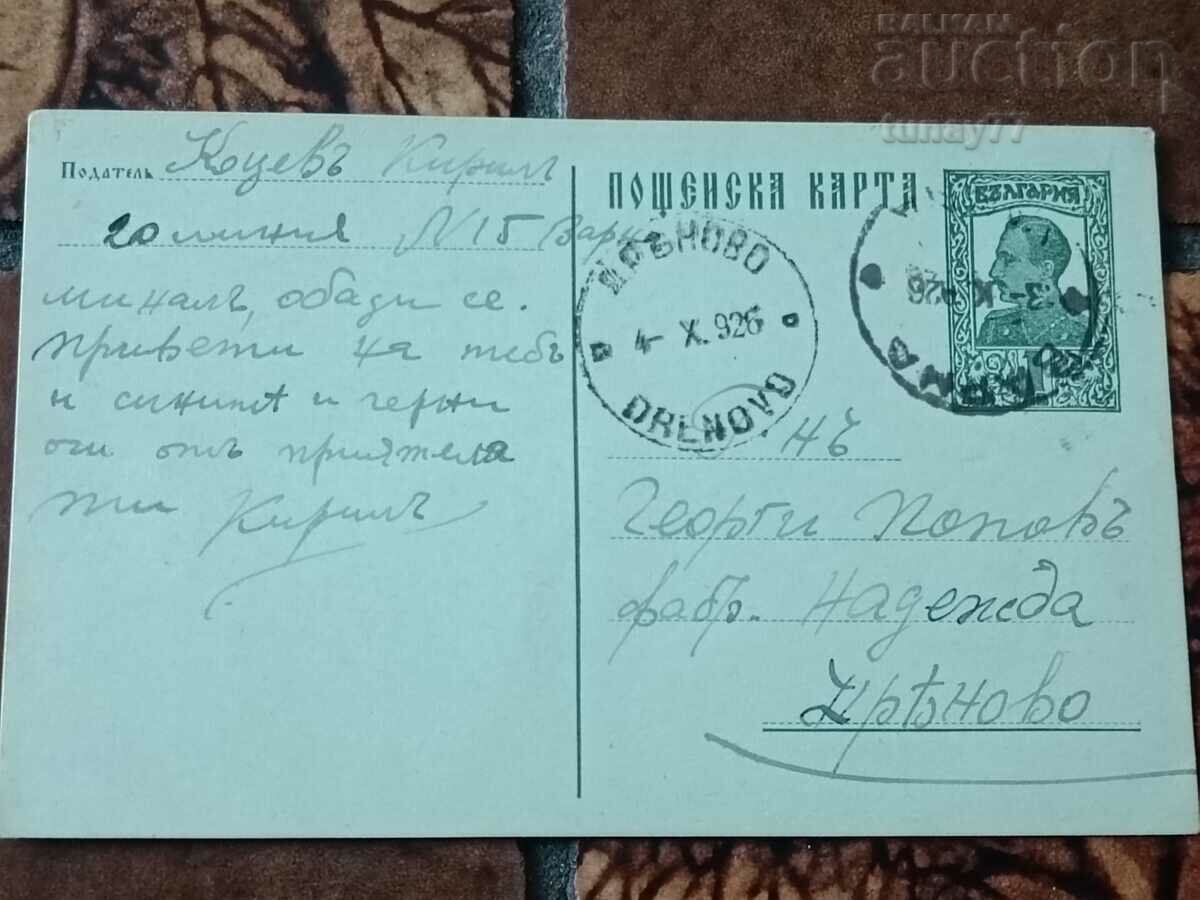 BALKAN
auction
tunay77
Податель Коцевъ Кирилъ
20 линия N 15 Варна
миналъ, обади се.
Привети на тебъ
и синитѣ и черни
очи отъ приятеля
ти Кирилъ
ПОЩЕНСКА КАРТА
БЪЛГАРИЯ
ДРѢНОВО
4- X. 926
DRENOVO
3- X 926
1
Нъ
Георги Поповъ
фабр. Надежда
Дрѣново